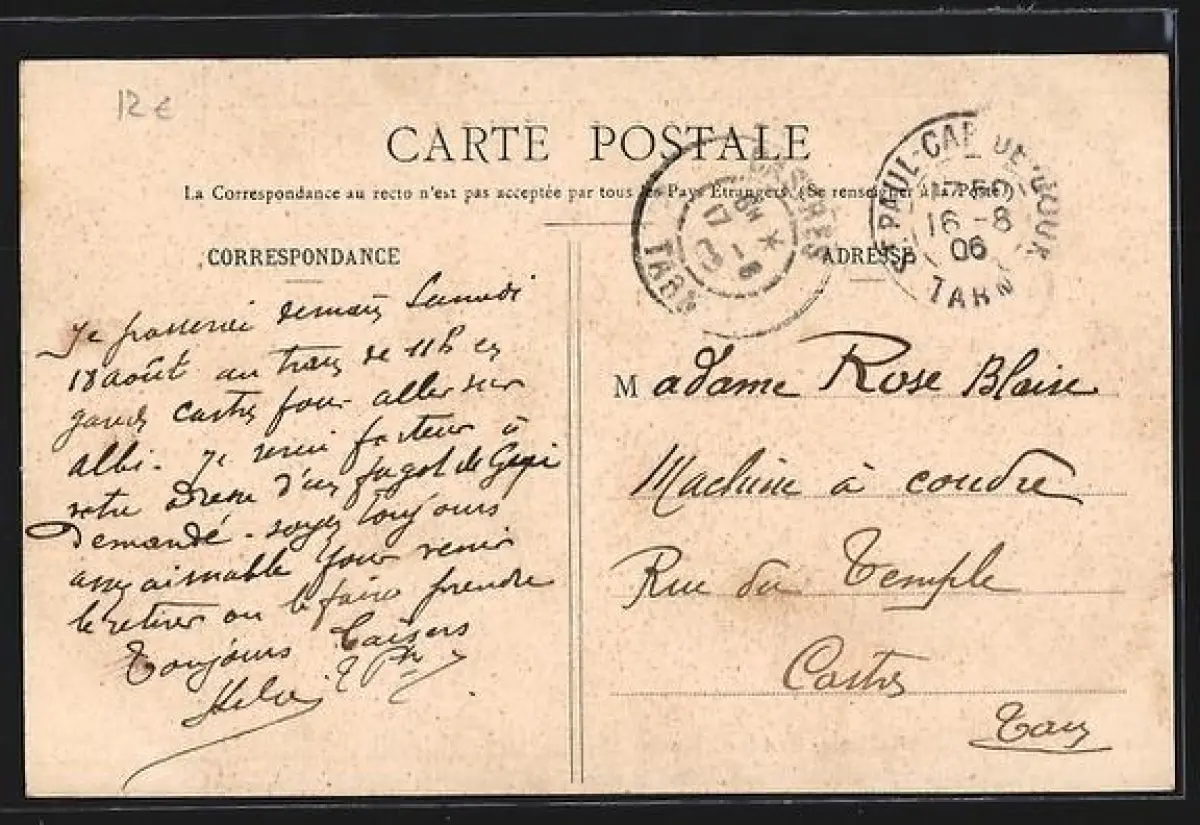 12 €
CARTE POSTALE
La Correspondance au recto n'est pas acceptée par tous les Pays Étrangers. (Se renseigner à la Poste)
CASTRES
17 - 8
TARN
ST PAUL-CAP-DE-JOUX
16 - 8
06
TARN
CORRESPONDANCE
Je passerai demain Samedi
18 août au train de 11h en
gare de castres pour aller sur
albi. Je serai porteur à
votre adresse d'un fagot de
Demandé - soyez toujours
assez aimable pour venir
le retirer ou le faire prendre
Toujours baisers
ADRESSE
Madame Rose Blaise
Machine à coudre
Rue du Temple
Castres
Tarn